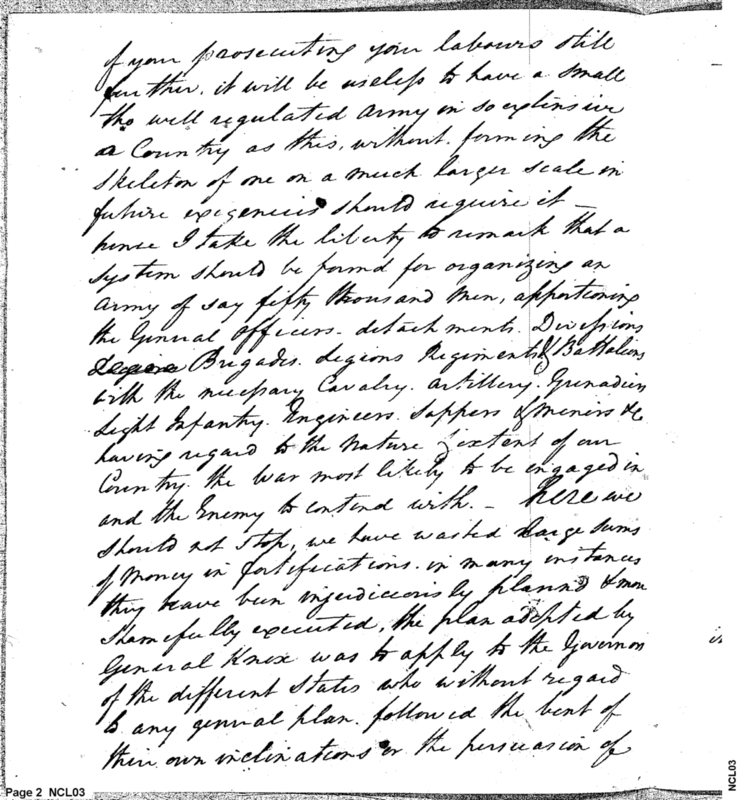 of your prosecuting your labours still
further, it will be useless to have a small
tho well regulated army in so extensive
a Country as this, without forming the
skeleton of one on a much larger scale in
future exigencies should require it —
hence I take the liberty to remark that a
system should be formd for organizing an
army of say fifty thousand men, apportioning
the General officers. detachments. Divissions
Brigades. Legions Regiments & Battalions
with the necessary Cavalry. Artillery. Grenadiers
Light Infantry. Engineers. Sappers & Miners &c
having regard to the Nature & extent of our
Country. the War most likely to be engaged in
and the Enemy to contend with. — Here we
should not stop, we have wasted large sums
of Money in fortifications. in many instances
they have been injudiciously plannd & more
shamefully executed, the plan adopted by
General Knox was to apply to the Governors
of the different States who without regard
to any general plan. followed the bent of
their own inclinations or the persuasion of
is
Page 2 NCL03
NCL03